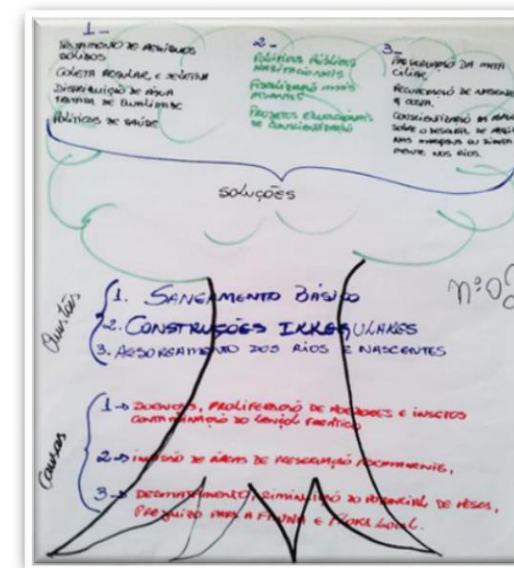 1-
TRATAMENTO DE RESÍDUOS
SÓLIDOS
COLETA REGULAR E SELETIVA
DISTRIBUIÇÃO DE ÁGUA
TRATADA DE QUALIDADE
POLÍTICAS DE SAÚDE
2-
POLÍTICAS PÚBLICAS
HABITACIONAIS
FISCALIZAÇÃO MAIS
PROJETOS EDUCACIONAIS
DE CONSCIENTIZAÇÃO
3-
PRESERVAÇÃO DA MATA
CILIAR,
RECUPERAÇÃO DE
CONSCIENTIZAÇÃO
SOBRE O DESCARTE DE
NAS MARGENS OU
NOS RIOS.
SOLUÇÕES
nº 0
Questões
1. SANEAMENTO BÁSICO
2. CONSTRUÇÕES IRREGULARES
3. ASSOREAMENTO DOS RIOS E NASCENTES
Causas
1- DOENÇAS, PROLIFERAÇÃO DE ROEDORES E INSETOS
CONTAMINAÇÃO DO LENÇOL FREÁTICO
2- INVASÃO DE ÁREAS DE PRESERVAÇÃO PERMANENTE,
3- DESMATAMENTO, DIMINUIÇÃO DO POTENCIAL DE PEIXES,
PREJUÍZO PARA A FAUNA E FLORA LOCAL.